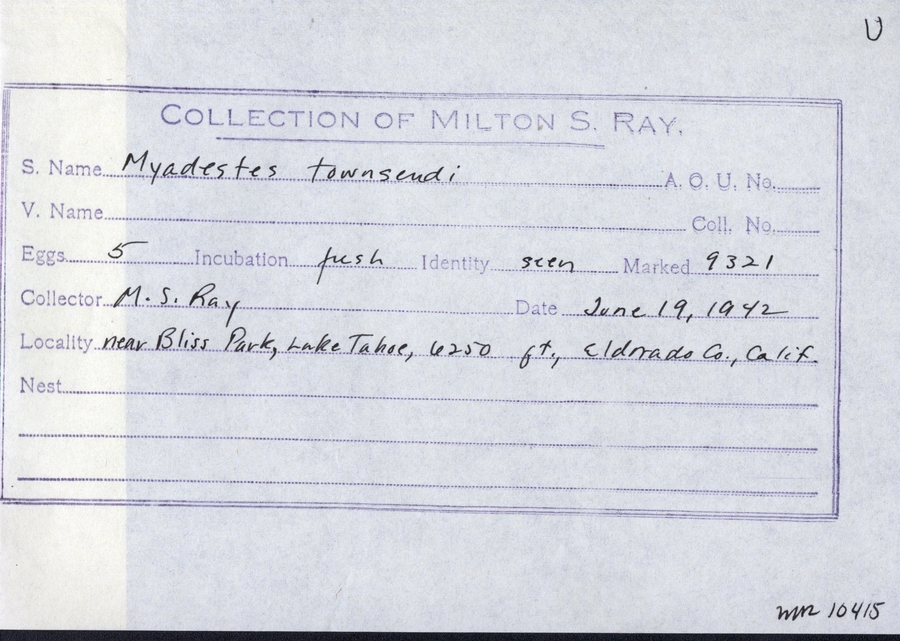 U
COLLECTION OF MILTON S. RAY.
S. Name Myadestes townsendi A. O. U. No.
V. Name Coll. No.
Eggs 5 Incubation fresh Identity seen Marked 9321
Collector M. S. Ray Date June 19, 1942
Locality near Bliss Park, Lake Tahoe, 6250 ft., Eldorado Co., Calif.
Nest
10415